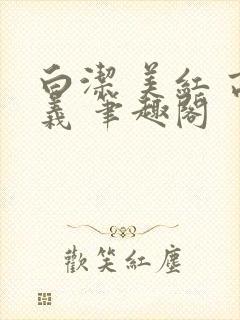 白潔 美紅 
義 筆趣閣
歡笑紅塵